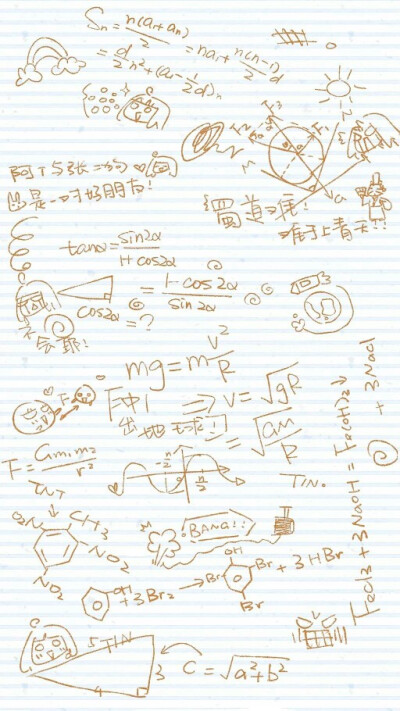 Sₙ = n(a₁+aₙ)/2 = na₁ + n(n-1)/2 d
= d/2 n² + (a₁ - 1/2 d)n
F₃
F₂
F₁
M
N
G
阿丁与张二狗
是一对好朋友!
蜀道难
难于上青天!!!
tanα = sin2α/1+cos2α
= 1-cos2α/sin2α
cos2α = ?
不会耶!
mg = m v²/R
F
⇒ V = √gR
= √GM/R
出地球!
F = Gm₁m₂/r²
-π/2
π/2
TIN.
TNT
O₂N
CH₃
NO₂
NO₂
BANG!!
OH
+ 3Br₂ →
OH
Br
Br
Br
+ 3HBr
FeCl₃ + 3NaOH = Fe(OH)₃↓ + 3NaCl
5 TIN
3
4
C = √a²+b²